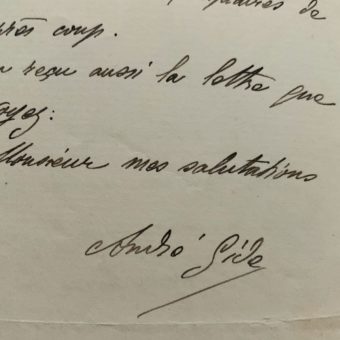 de
près coup.
reçu aussi la lettre que
Monsieur mes salutations
André Gide